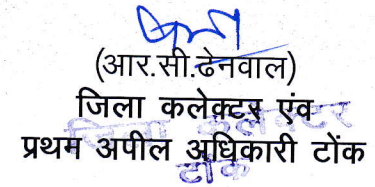 (आर.सी.ढेनवाल)
जिला कलेक्टर एंव
प्रथम अपील अधिकारी टोंक
जिला कलेक्टर
टोंक